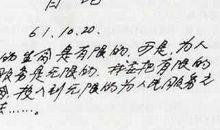 61.10.20.
的生命是有限的，可是，为人
服务是无限的，我要把有限的
投入到无限的为人民服务之
去……。